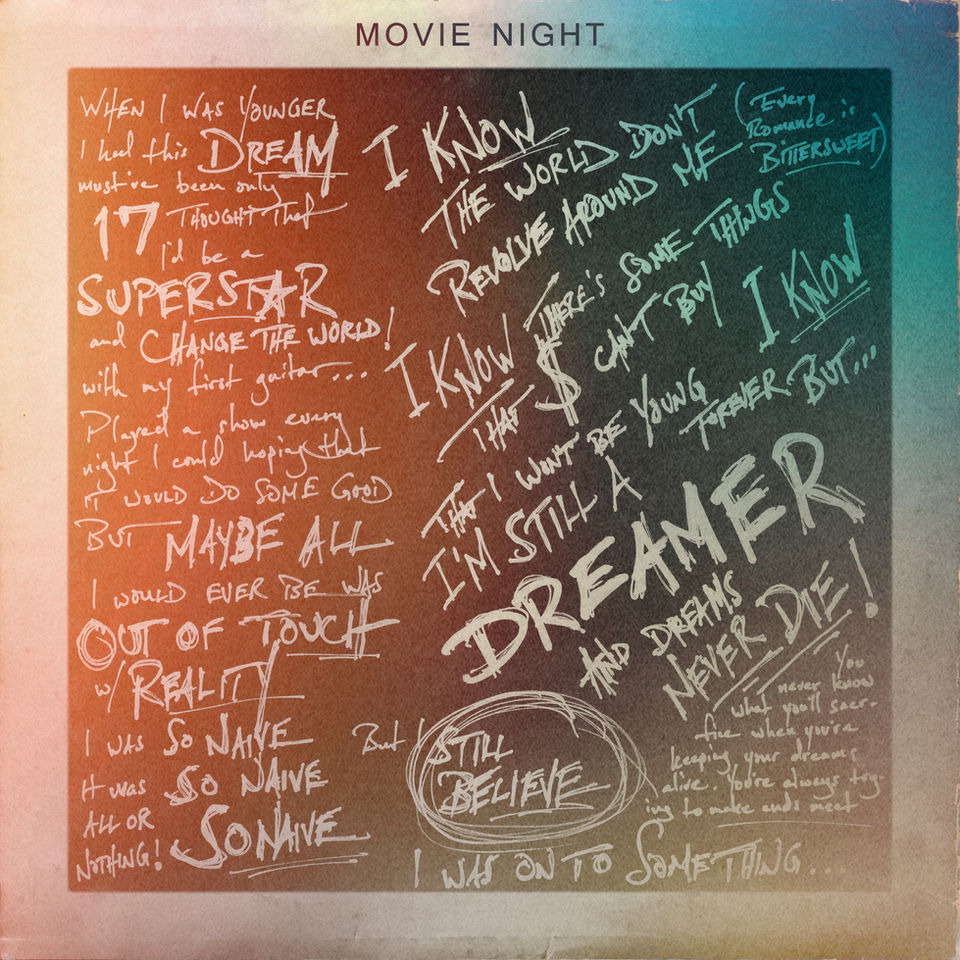 MOVIE NIGHT
WHEN I WAS YOUNGER
I had this DREAM
must've been only
17 THOUGHT THAT
I'd be a
SUPERSTAR
and CHANGE THE WORLD!
with my first guitar...
Played a show every
night I could hoping that
IT WOULD DO SOME GOOD
BUT MAYBE ALL
I WOULD EVER BE WAS
OUT OF TOUCH
w/ REALITY
I WAS SO NAIVE
It was SO NAIVE
ALL OR
NOTHING! SO NAIVE
I KNOW
THE WORLD DON'T
REVOLVE AROUND ME
(Every
Romance is
BITTERSWEET)
I KNOW THERE'S SOME THINGS
THAT $ CAN'T BUY I KNOW
THAT I WON'T BE YOUNG
FOREVER. BUT...
I'M STILL A
DREAMER
AND DREAMS
NEVER DIE!
You
never know
what you'll sacr-
fice when you're
keeping your dreams
alive. You're always try-
ing to make ends meet
But I STILL
BELIEVE
I WAS ON TO SOMETHING...